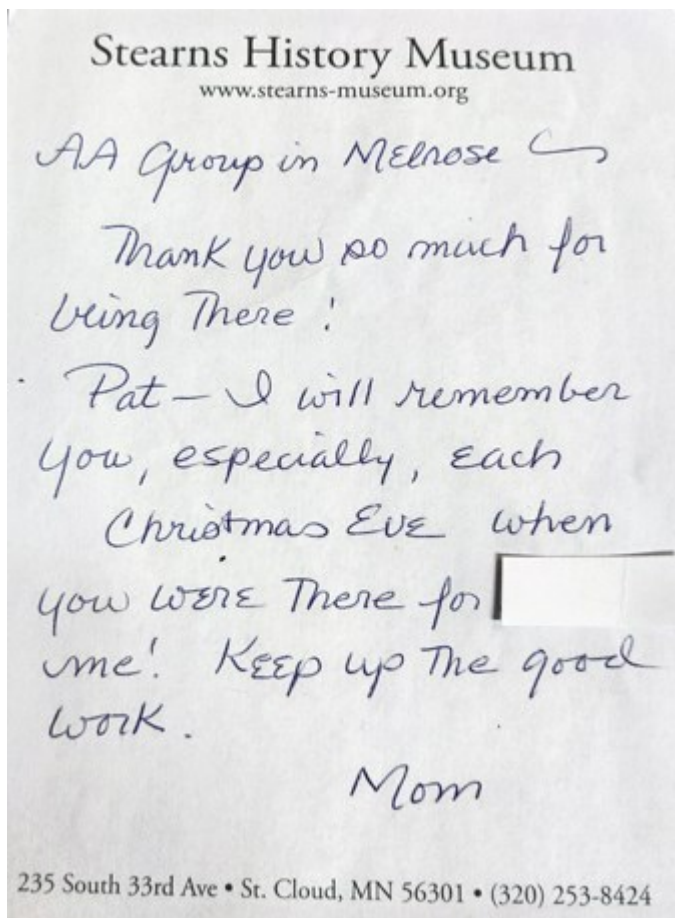 Stearns History Museum
www.stearns-museum.org
AA Group in Melrose
Thank you so much for
being There!
Pat – I will remember
you, especially, each
Christmas Eve when
you were There for
me! Keep up The good
work.
Mom
235 South 33rd Ave • St. Cloud, MN 56301 • (320) 253-8424